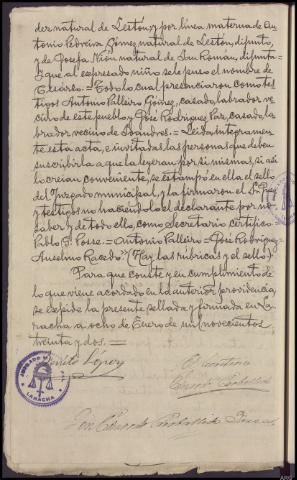 der natural de Lestón, y por línea materna de An-
tonio Pedreira Gómez, natural de Lestón, difunto,
y de Josefa Mión natural de San Román, difunta=
Y que al expresado niño se le puso el nombre de
Cesáreo.= Todo lo cual presenciaron como tes-
tigos Antonio Palleiro Gómez, casado, labrador, ve-
cino de este pueblo, y José Rodríguez Paz, casado, la-
brador vecino de Soandres.= Leída íntegramen-
te esta acta, e invitadas las personas que deben
suscribirla a que la leyeran por sí mismas, si así
lo creían conveniente, se estampó en ella el sello
del Juzgado municipal, y la firmaron el Sr. Juez
y testigos no haciéndolo el declarante por no
saber y de todo ello, como Secretario certifico
Pablo P. Posse.= Antonio Palleiro= José Rodríguez=
Anselmo Racedo." (Hay las rúbricas y el sello)
Para que conste y en cumplimiento de
lo que viene acordado en la anterior providencia,
se expide la presente sellada y firmada en La-
racha a ocho de Enero de mil novecientos
treinta y dos.=
Benito López
Eduardo
JUZGADO
LARACHA
Don Eduardo